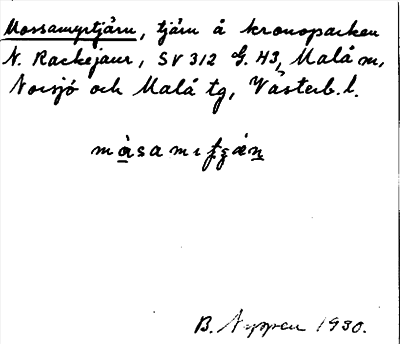 Mossamyrtjärn, tjärn å kronoparken
N. Rackejaur, SV 312 G. H3, Malå m,
Norsjö och Malå tg, Västerb. l.
B. Nyppen 1930.